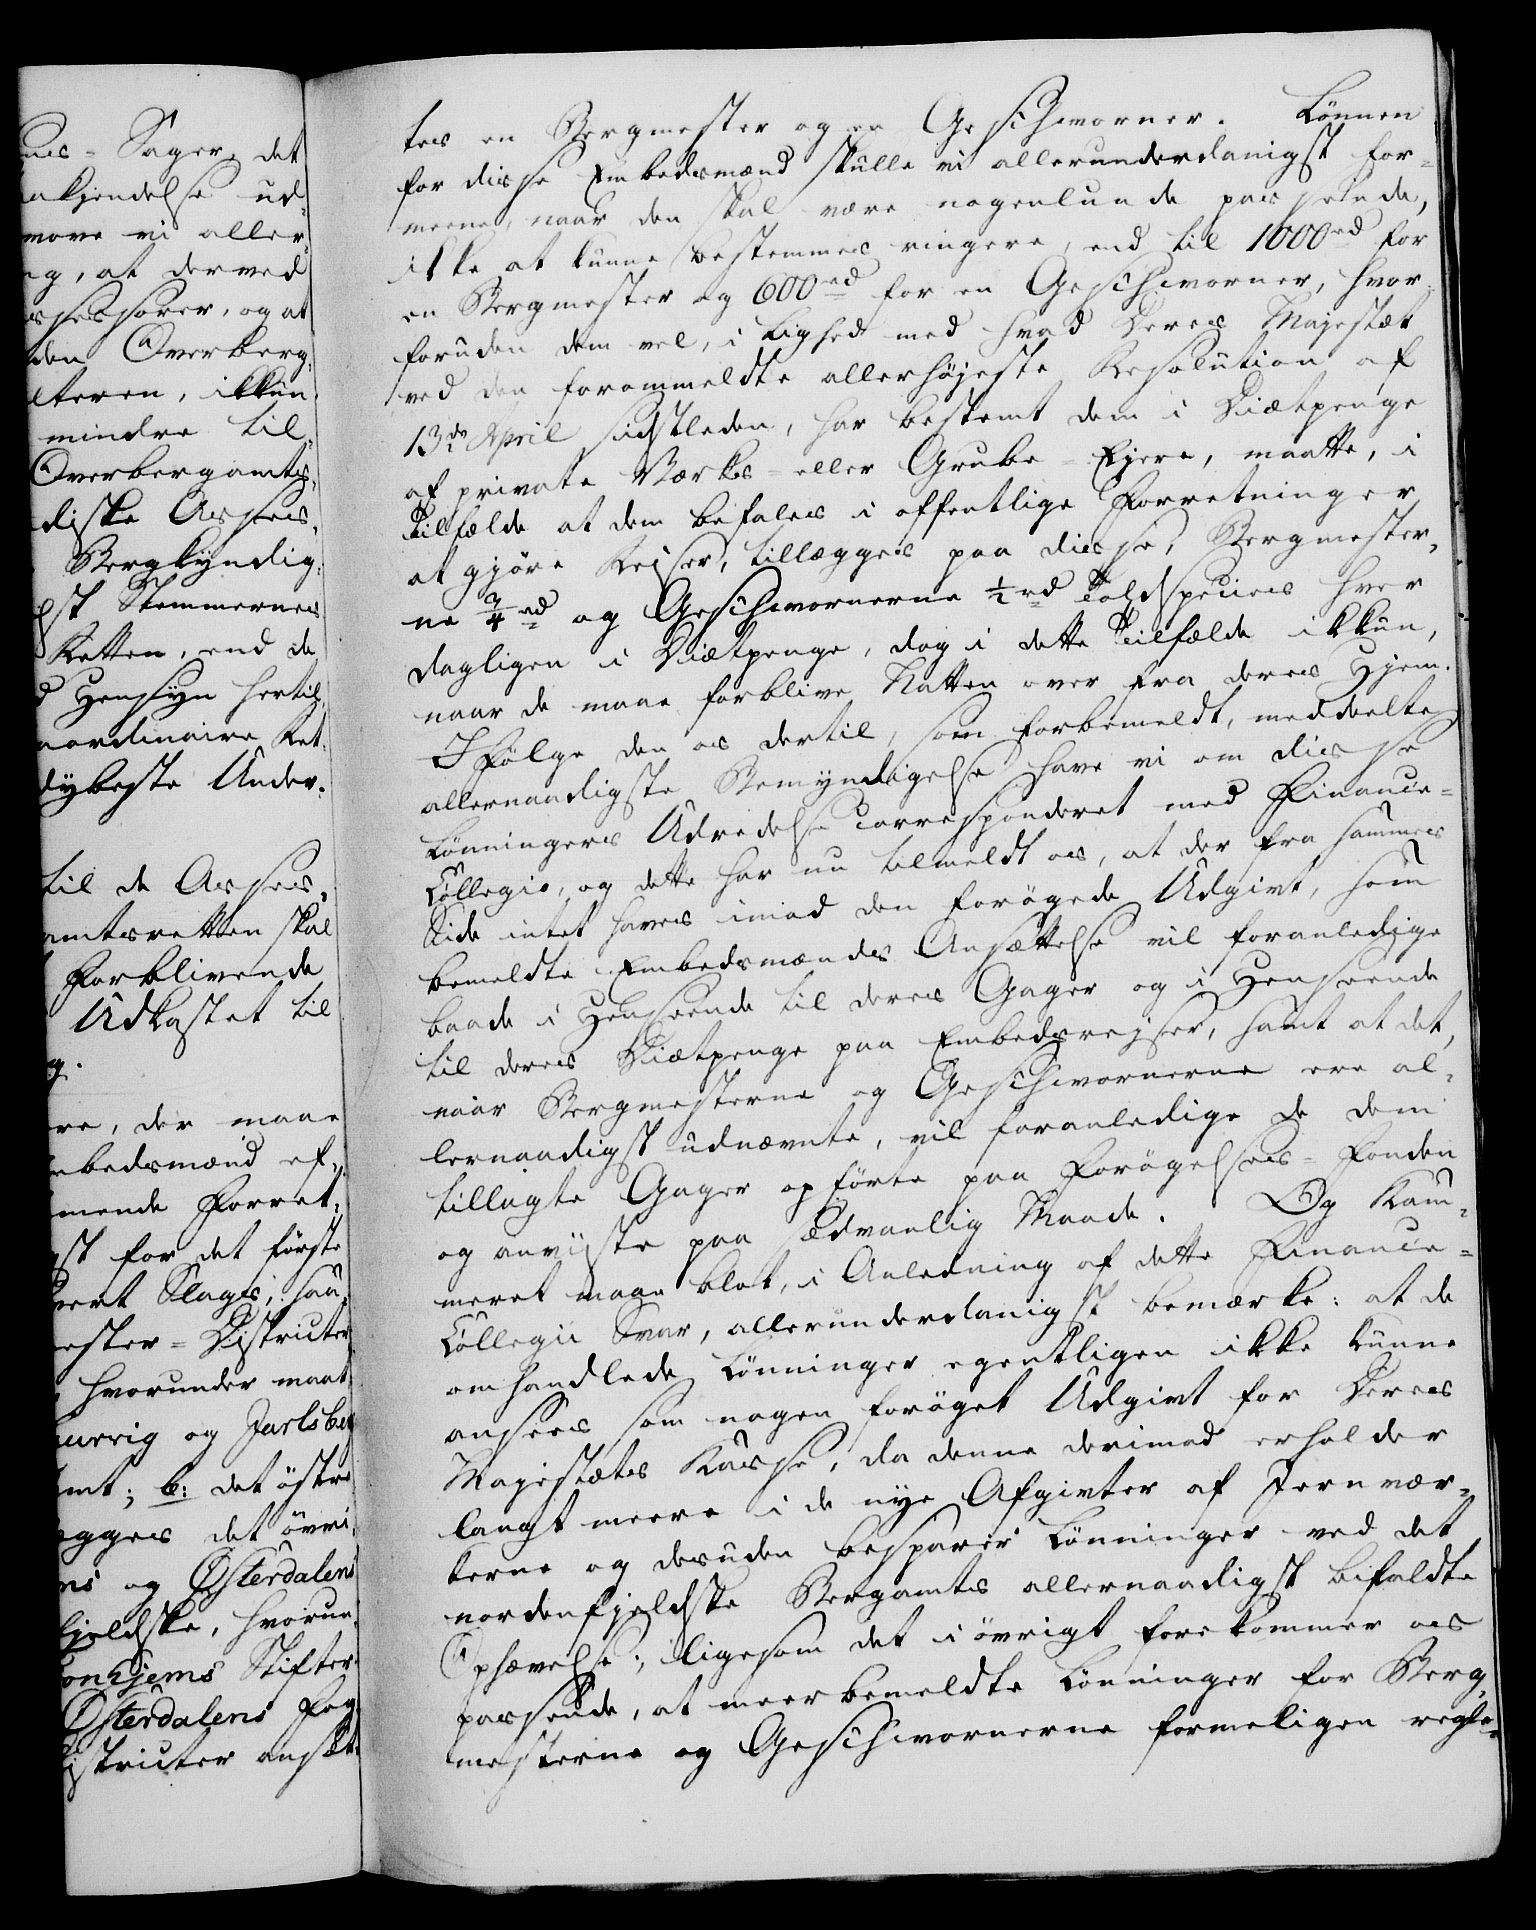 nes = Sager, det
akjendelse ud-
vove vi aller-
ng, at derved
ssessorer, og at
den Overberg-
lteren, ikkun
mindre til-
Overbergamts-
diske Asses-
Bergkyndig-
lst Stemmernes
Retten, end de
d Hensyn hertil
aordinaire Ret-
dybeste Under-
til de Asses-
amtsretten skal
forblivende
Udkastet til
g.
re, der maae
bedsmænd ef-
mende Forret-
gst for det første
vert Slags, saa-
ester = Districter
hvorunder maat
urvig og Jarlsbe
mt; b: det østre
egges det øvri-
ns og Østerdalens
fjeldske, hvorun-
onhjems Stifter
Østerdalens Fog-
istricter ansæt-
tes en Bergmester og en Geschworner. Lønnen
for disse Embedsmænd skulle vi allerunderdanigst for-
meene, naar den skal være nogenlunde passende,
ikke at kunne bestemmes ringere, end til 1000 rd for
en Bergmester og 600 rd for en Geschworner, hvor-
foruden dem vel, i Lighed med hvad Deres Majestæt
ved den forommeldte allerhøjeste Resolution af
13de April sidstleden, har bestemt dem i Diætpenge
af private Værks = eller Grube = Ejere, maatte, i
Tilfælde at dem befales i offentlige Forretninger
at gjøre Reiser, tillægges paa disse, Bergmester-
ne 3/4 rd og Geschwornerne 1/2 rd Toldspecies hver
dagligen i Diætpenge, dog i dette Tilfælde ikkun,
naar de maae forblive Natten over fra deres Hjem.
I Følge den os dertil, som forbemeldt, meddeelte
allernaadigste Bemyndigelse have vi om disse
Lønningers Udredelse correspondent med Finance =
Collegio, og dette har nu tilmeldt os, at der fra sammes
Side intet haves imod den forøgede Udgivt, som
bemeldte Embedsmænds Ansættelse vil foranledige
baade i Henseende til deres Gager og i Henseende
til deres Diætpenge paa Embedsrejser, samt at det,
naar Bergmesterne og Geschwornerne ere al-
lernaadigst udnævnte, vil foranledige de dem
tillagte Gager opførte paa Forøgelses = Fonden
og anviiste paa sædvanlig Maade. Og Kam-
meret maae blot, i Anledning af dette Finance =
Collegii Svar, allerunderdanigst bemærke: at de
omhandlede Lønninger egentligen ikke kunne
ansees som nogen forøget Udgivt for Deres
Majestæts Kasse, da denne derimod erholder
langt meere i de nye Afgivter af Jernvær-
kerne og desuden besparer Lønninger ved det
nordenfjeldske Bergamts allernaadigst bifaldte
Ophævelse; ligesom det i øvrigt forekommer os
passende, at meerbemeldte Lønninger for Berg-
mesterne og Geschwornerne formeligen regle-